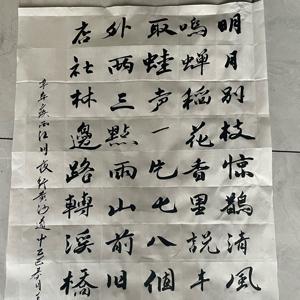 明月别枝惊鵲清风
鳴蟬稻花香里說丰
取蛙声一片七八個
外两三點雨山前旧
店社林邊路轉溪橋
辛弃疾西江月夜行黄沙道中